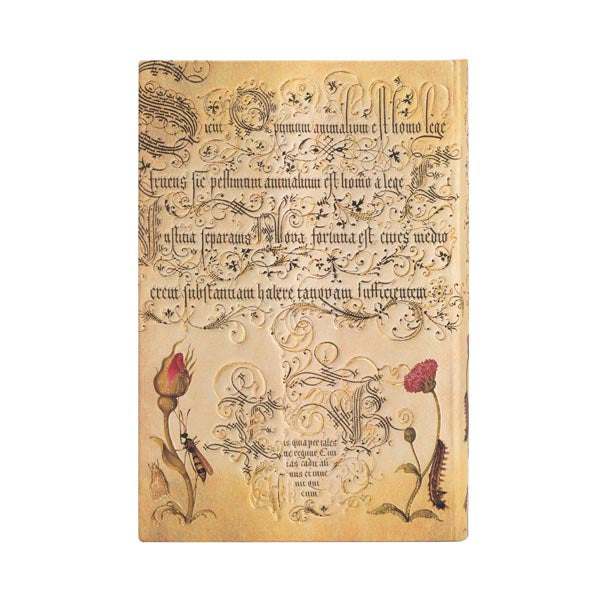 Sicut Optimum animalium est homo lege
fruens sic pessimum animalium est homo a lege E
Iustitia separatus Nova fortuna est cives medio
crem substantiam habere tanquam sufficientem
is quia per tales
ne regitur Civi
tas cadit ali
cum